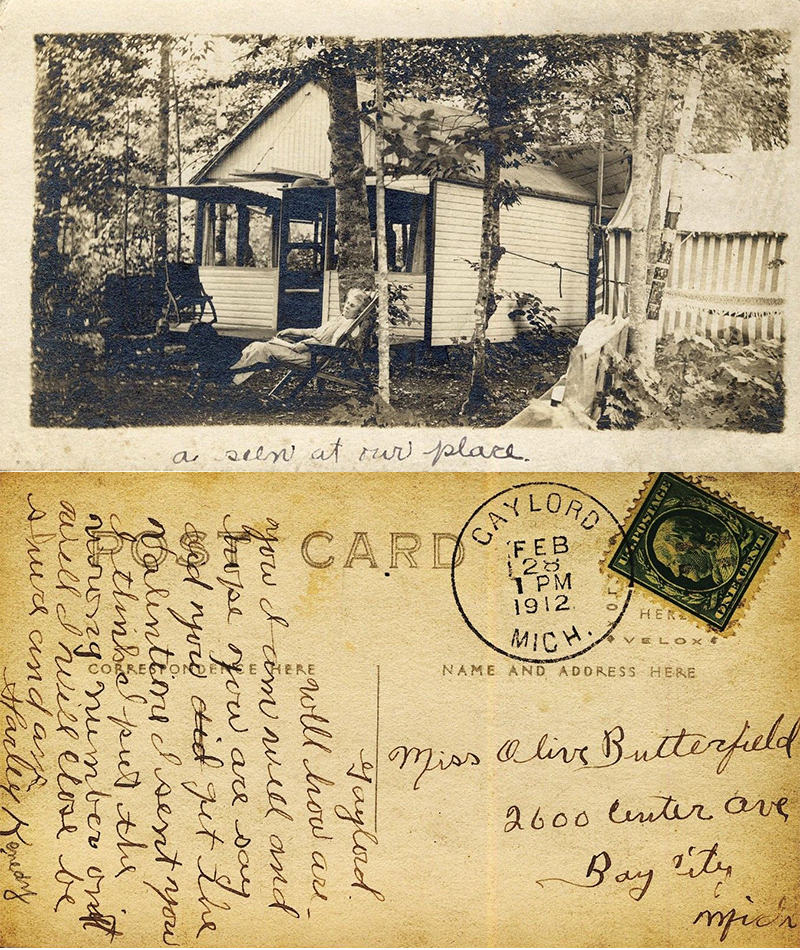 a seen at our place.
POST CARD
GAYLORD
FEB
28
1 PM
1912
MICH.
POSTAGE
ONE CENT
HERE
VELOX
CORRESPONDENCE HERE
NAME AND ADDRESS HERE
Gaylord.
Well how are
you I am well and
hope you are say
did you did get the
Valentine I sent you
I think I put the
wrong number on it
well I will close be
shure and ans
Harley Kenedy
Miss Olive Butterfield
2600 Center Ave
Bay City
Mich